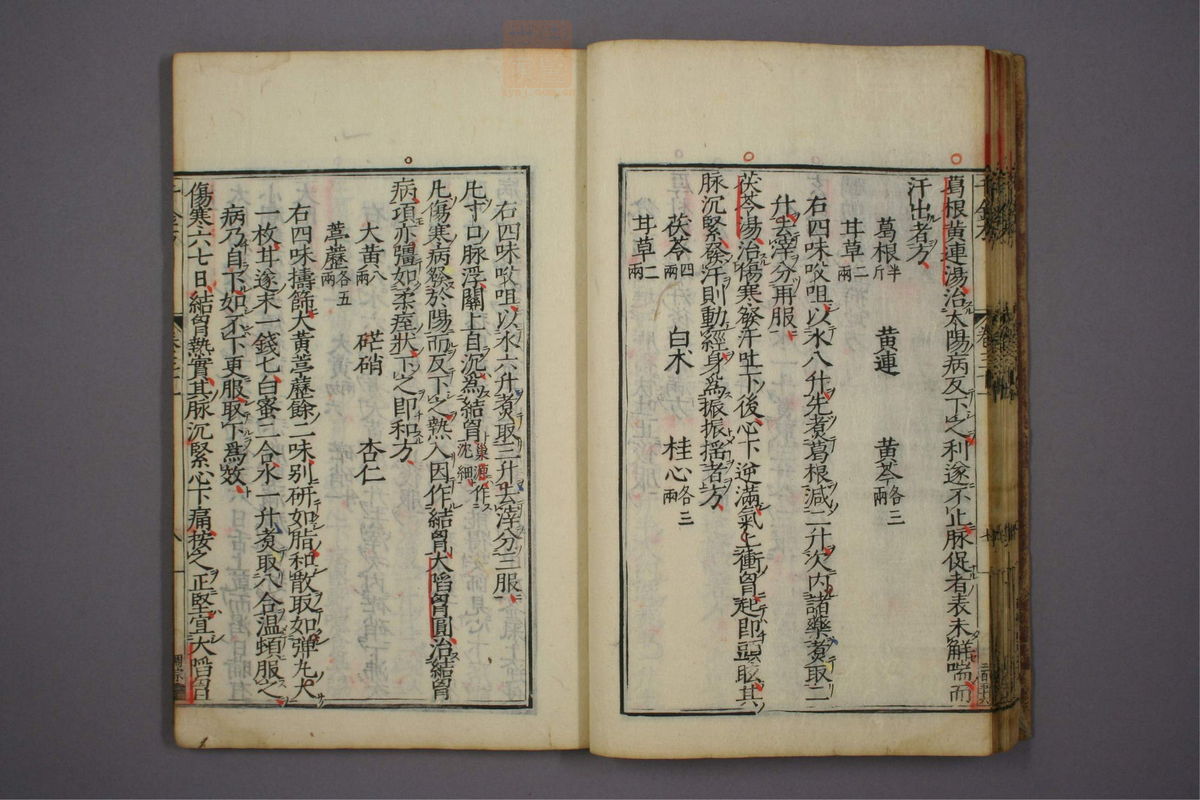 葛根黄連湯治太陽病反下之利遂不止脉促者表未解喘而
汗出者方
葛根半斤 黄連 黄芩各三兩
甘草二兩
右四味㕮咀以水八升先煮葛根減二升次内諸藥煮取二
升去滓分再服
茯苓湯治傷寒發汗吐下後心下逆滿氣上衝胷起即頭眩其
脉沉緊發汗則動經身爲振振揺者方
茯苓四兩 白术 桂心各三兩
甘草二兩
右四味㕮咀以水六升煮取三升去滓分三服
凡寸口脉浮關上自沉爲結胷巢源作沈細
凡傷寒病發於陽而反下之熱入因作結胷大陷胷圓治結胷
病項亦彊如柔痓狀下之即和方
大黄八兩 芒硝 杏仁
葶藶各五兩
右四味擣篩大黄葶藶餘二味别研如脂和散取如弾丸大
一枚甘遂末一錢匕白蜜二合水一升煮取八合温頓服之
病乃自下如不下更服取下爲效
傷寒六七日結胷熱實其脉沉緊心下痛按之正堅宜大陷胷